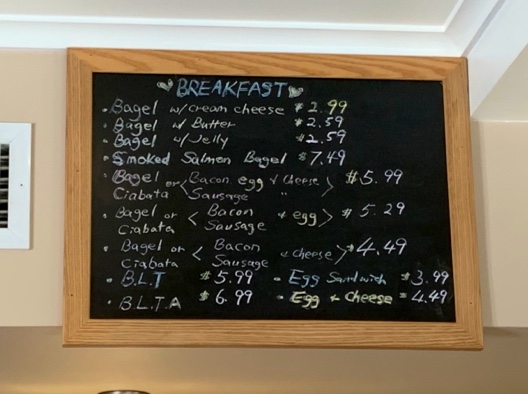 BREAKFAST
• Bagel w/cream cheese $2.99
• Bagel w/ Butter $2.59
• Bagel w/Jelly $2.59
• Smoked Salmon Bagel $7.49
• Bagel or Ciabata < Bacon egg & cheese > $5.99
Sausage "
• Bagel or < Bacon & egg > $5.29
Ciabata Sausage
• Bagel or < Bacon & cheese > $4.49
Ciabata Sausage
• B.L.T $5.99 - Egg Sandwich $3.99
• B.L.T.A $6.99 - Egg & Cheese = 4.49